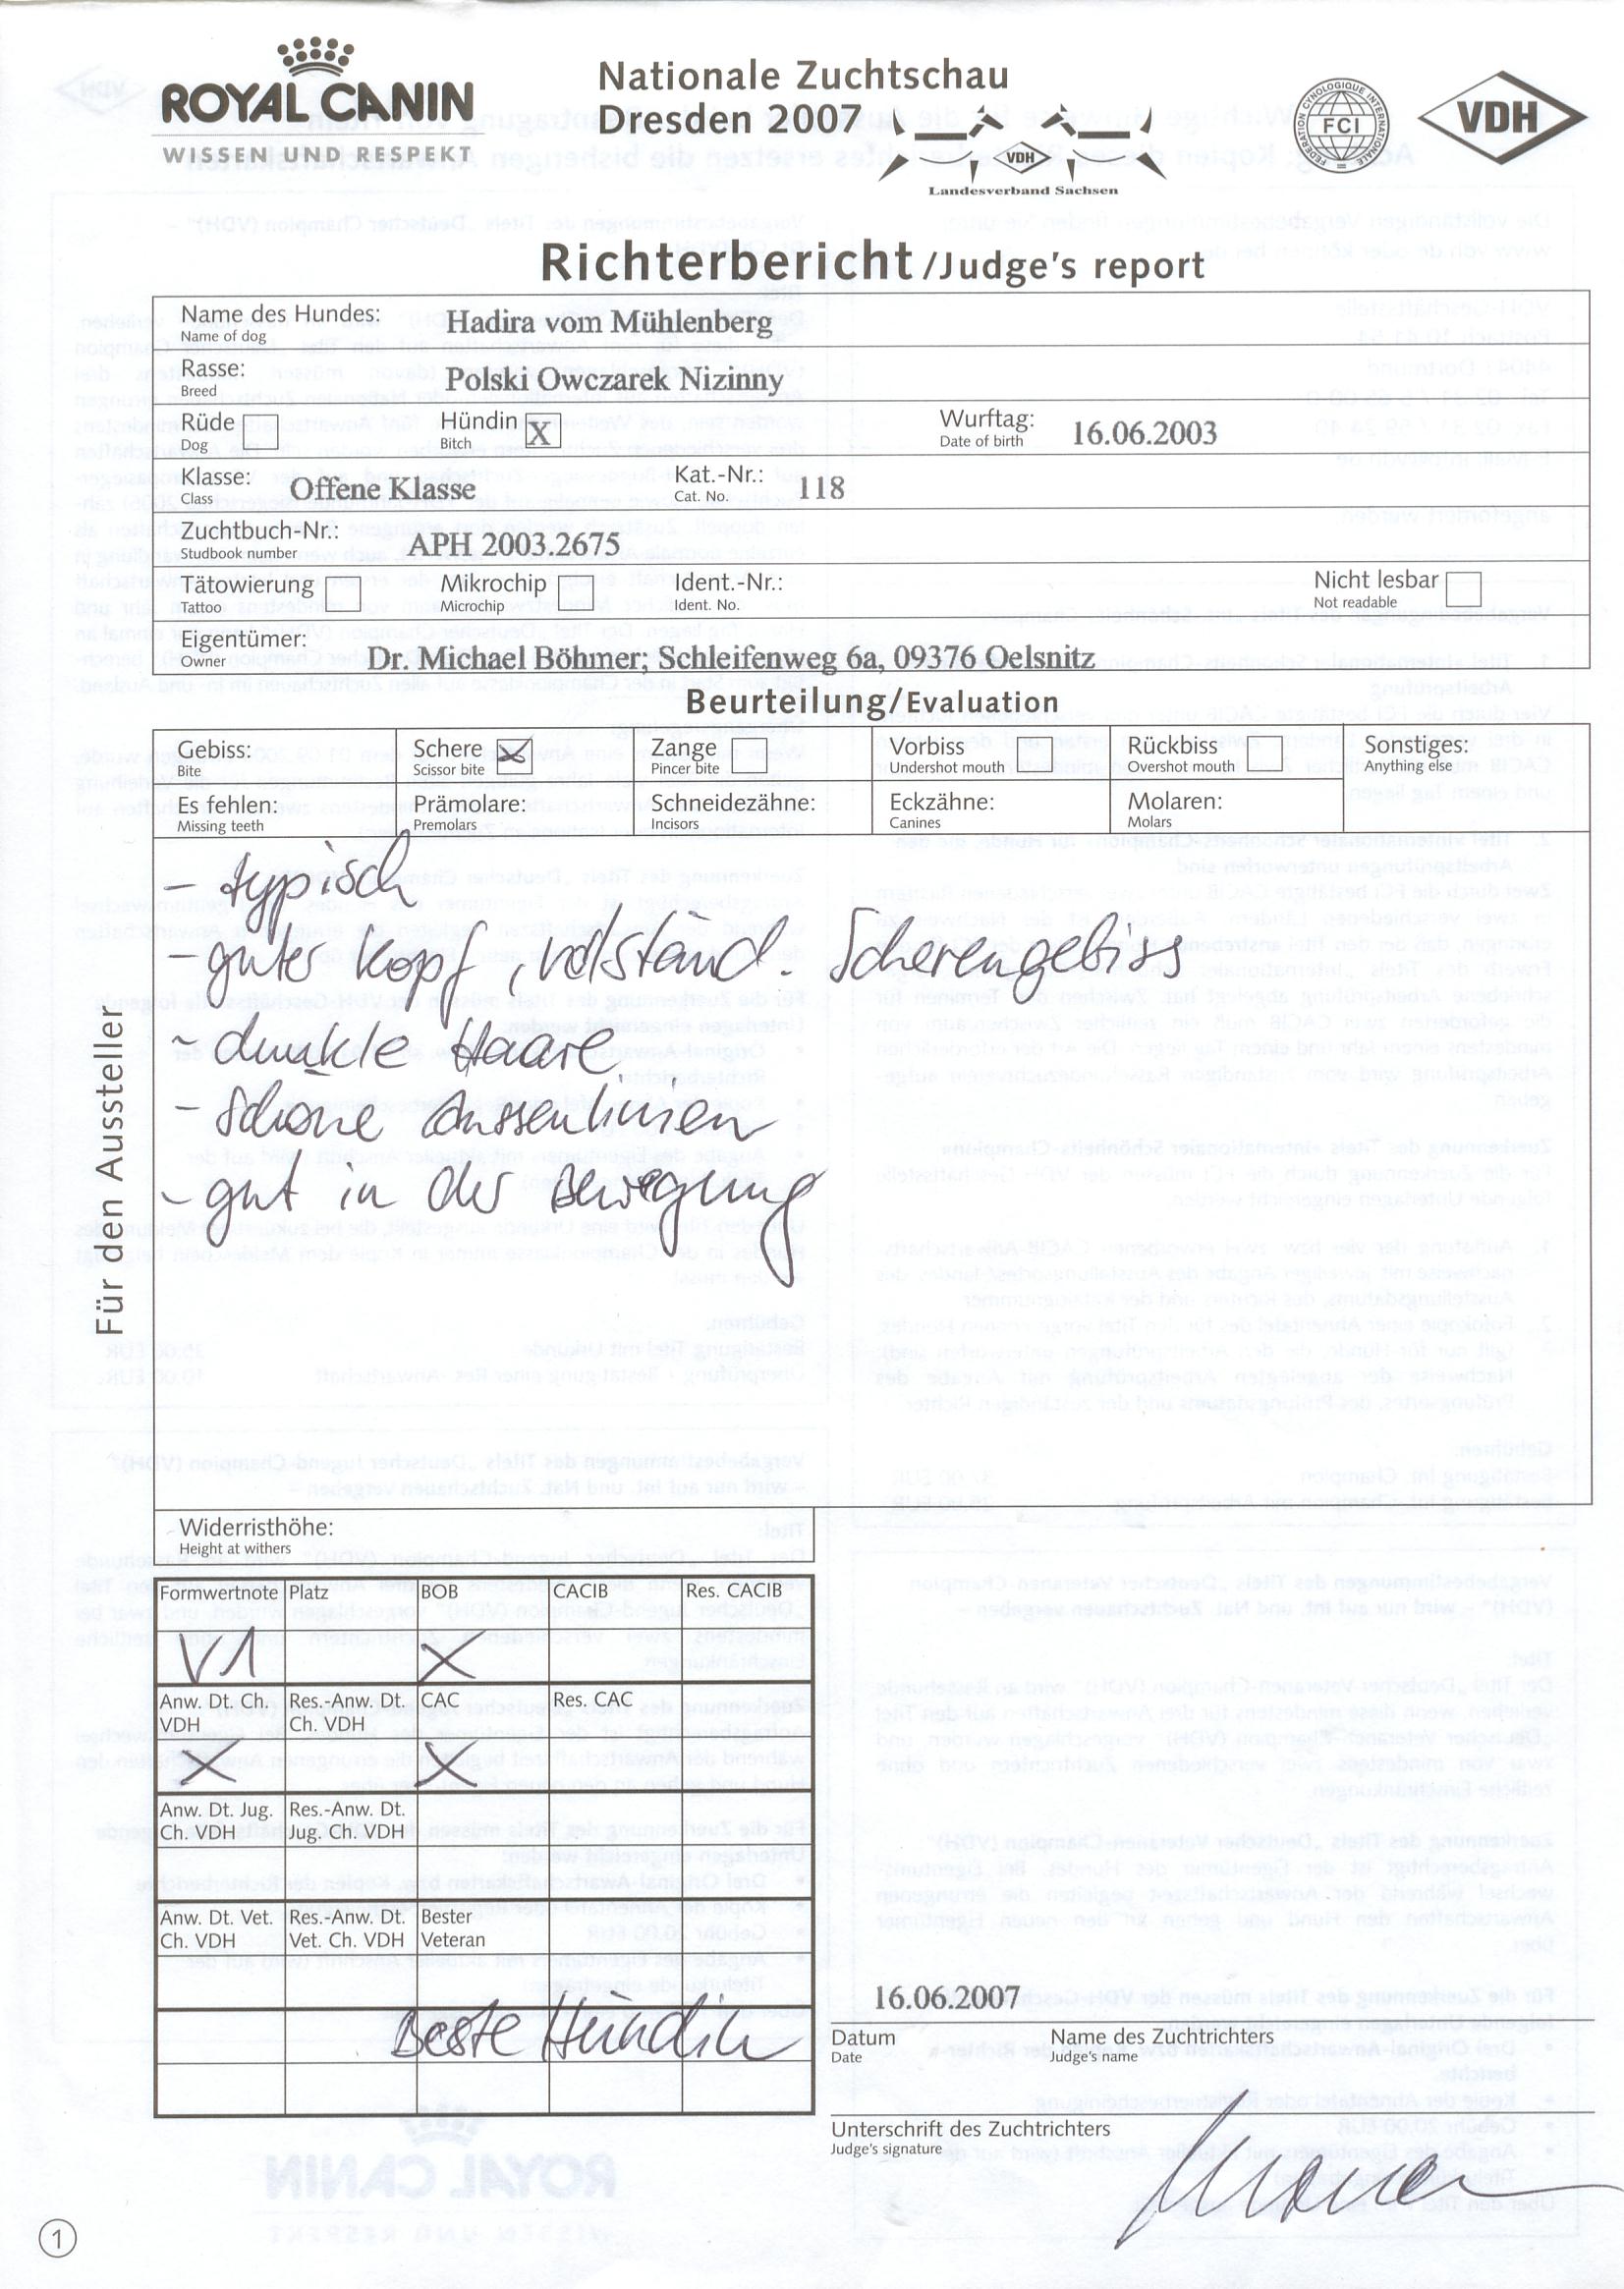 ROYAL CANIN
WISSEN UND RESPEKT
Nationale Zuchtschau
Dresden 2007
VDH
Landesverband Sachsen
FEDERATION CYNOLOGIQUE INTERNATIONALE
FCI
VDH
Richterbericht /Judge's report
Name des Hundes: Hadira vom Mühlenberg
Name of dog
Rasse: Polski Owczarek Nizinny
Breed
Rüde Hündin X Wurftag: 16.06.2003
Dog Bitch Date of birth
Klasse: Offene Klasse Kat.-Nr.: 118
Class Cat. No.
Zuchtbuch-Nr.: APH 2003.2675
Studbook number
Tätowierung Mikrochip Ident.-Nr.: Nicht lesbar
Tattoo Microchip Ident. No. Not readable
Eigentümer: Dr. Michael Böhmer, Schleifenweg 6a, 09376 Oelsnitz
Owner
Beurteilung/Evaluation
Gebiss: Schere X Zange Vorbiss Rückbiss Sonstiges:
Bite Scissor bite Pincer bite Undershot mouth Overshot mouth Anything else
Es fehlen: Prämolare: Schneidezähne: Eckzähne: Molaren:
Missing teeth Premolars Incisors Canines Molars
Für den Aussteller
- typisch
- guter Kopf, vollständ. Scherengebiss
- dunkle Haare
- schöne Aussenlinien
- gut in der Bewegung
Widerristhöhe:
Height at withers
Formwertnote Platz BOB CACIB Res. CACIB
V1 X
Anw. Dt. Ch. Res.-Anw. Dt. CAC Res. CAC
VDH Ch. VDH
X X
Anw. Dt. Jug. Res.-Anw. Dt.
Ch. VDH Jug. Ch. VDH
Anw. Dt. Vet. Res.-Anw. Dt. Bester
Ch. VDH Vet. Ch. VDH Veteran
Beste Hündin
16.06.2007
Datum Name des Zuchtrichters
Date Judge's name
Unterschrift des Zuchtrichters
Judge's signature
1